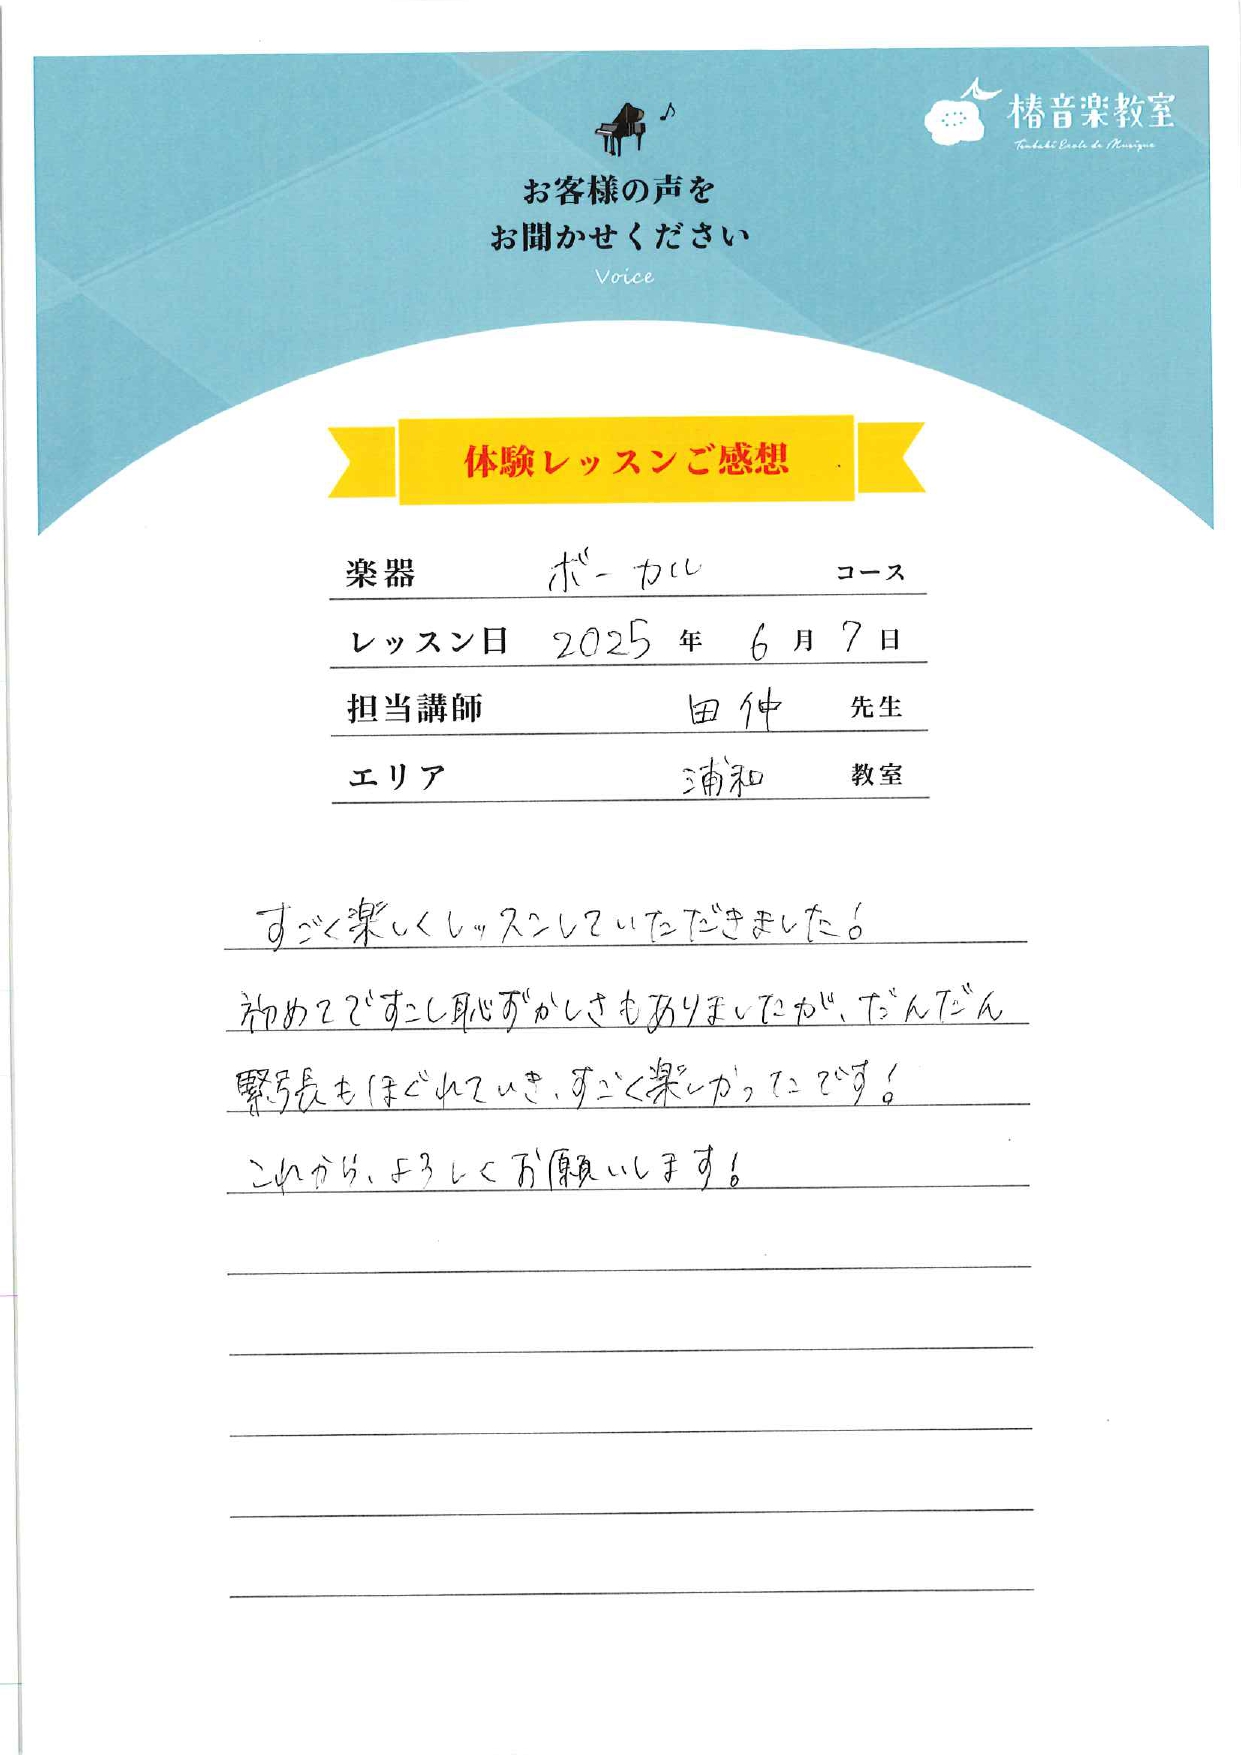 椿音楽教室
Tsubaki Ecole de Musique
お客様の声を
お聞かせください
Voice
体験レッスンご感想
楽器 ボーカル コース
レッスン日 2025 年 6 月 7 日
担当講師 田仲 先生
エリア 浦和 教室
すごく楽しくレッスンしていただきました!
初めてですこし恥ずかしさもありましたが、だんだん
緊張もほぐれていき、すごく楽しかったです!
これから、よろしくお願いします!